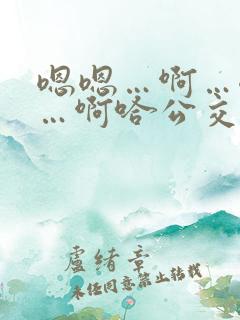 嗯嗯…啊…
…啊哈公交
盧緒章
未经同意禁止转载